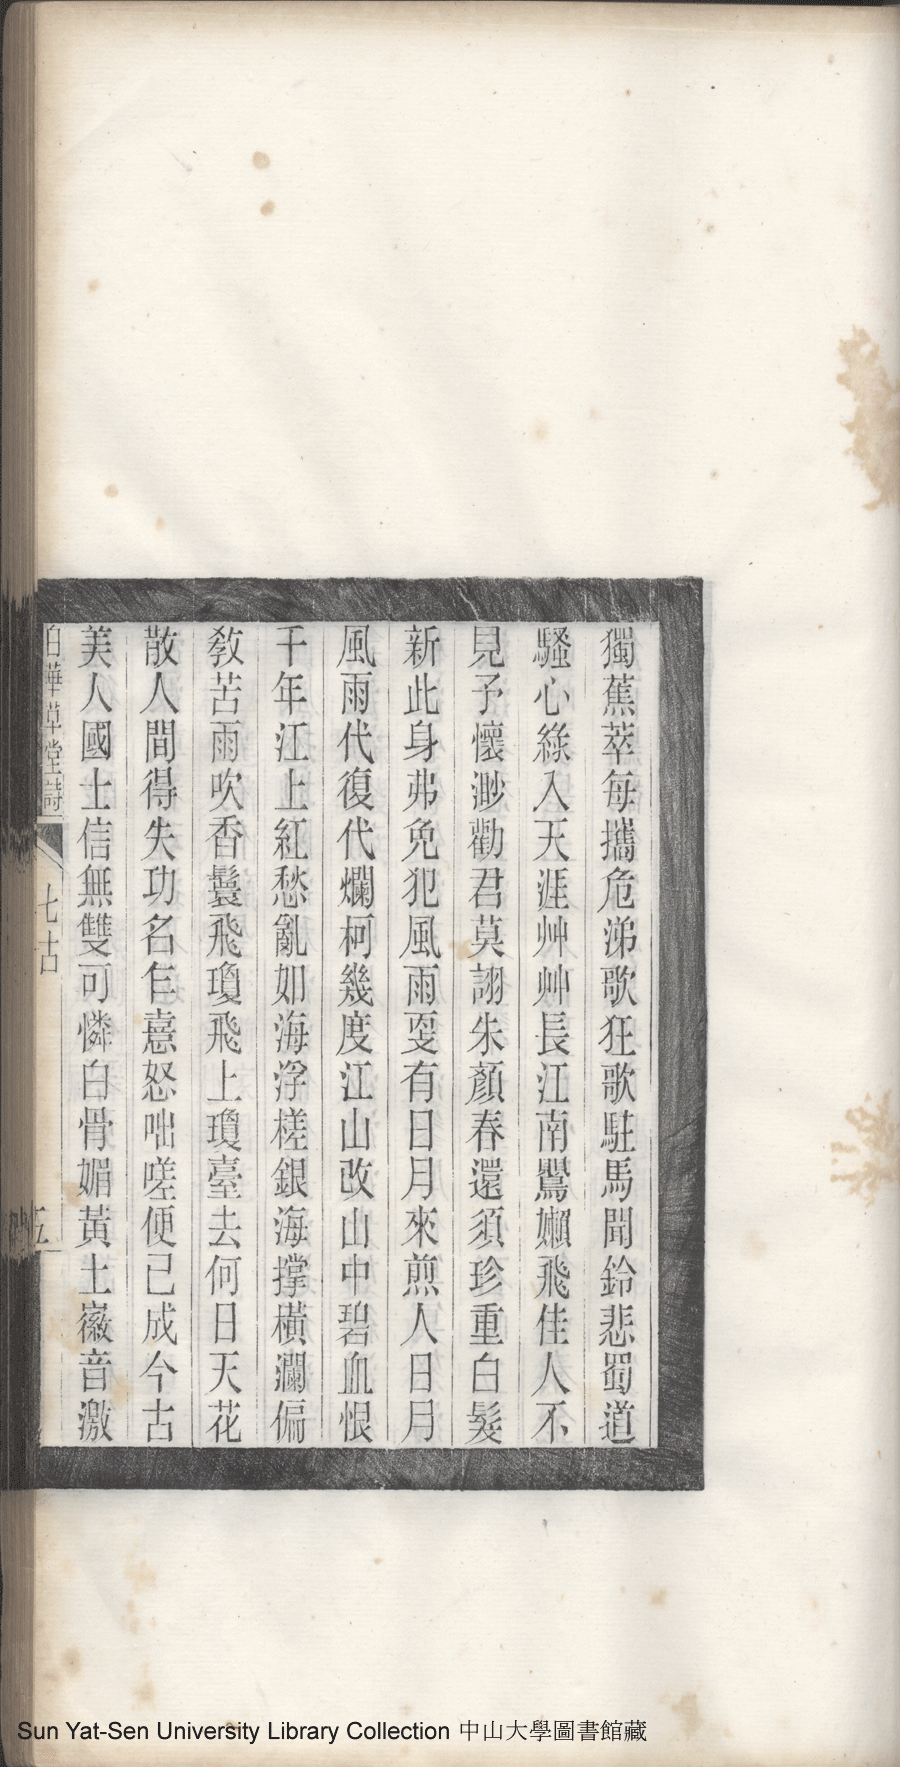 獨蕉萃每攜危涕歌狂歌駐馬聞鈴悲蜀道
騷心綠入天涯艸艸長江南鸎嬾飛佳人不
見予懷渺勸君莫詡朱顏春還須珍重白髮
新此身弗免犯風雨叜有日月來煎人日月
風雨代復代爛柯幾度江山改山中碧血恨
千年江上紅愁亂如海浮槎銀海撑橫瀾偏
教苦雨吹香鬟飛瓊飛上瓊臺去何日天花
散人間得失功名乍憙怒咄嗟便已成今古
美人國土信無雙可憐白骨媚黃土徽音激
白華草堂詩
七古
五
Sun Yat-Sen University Library Collection 中山大學圖書館藏